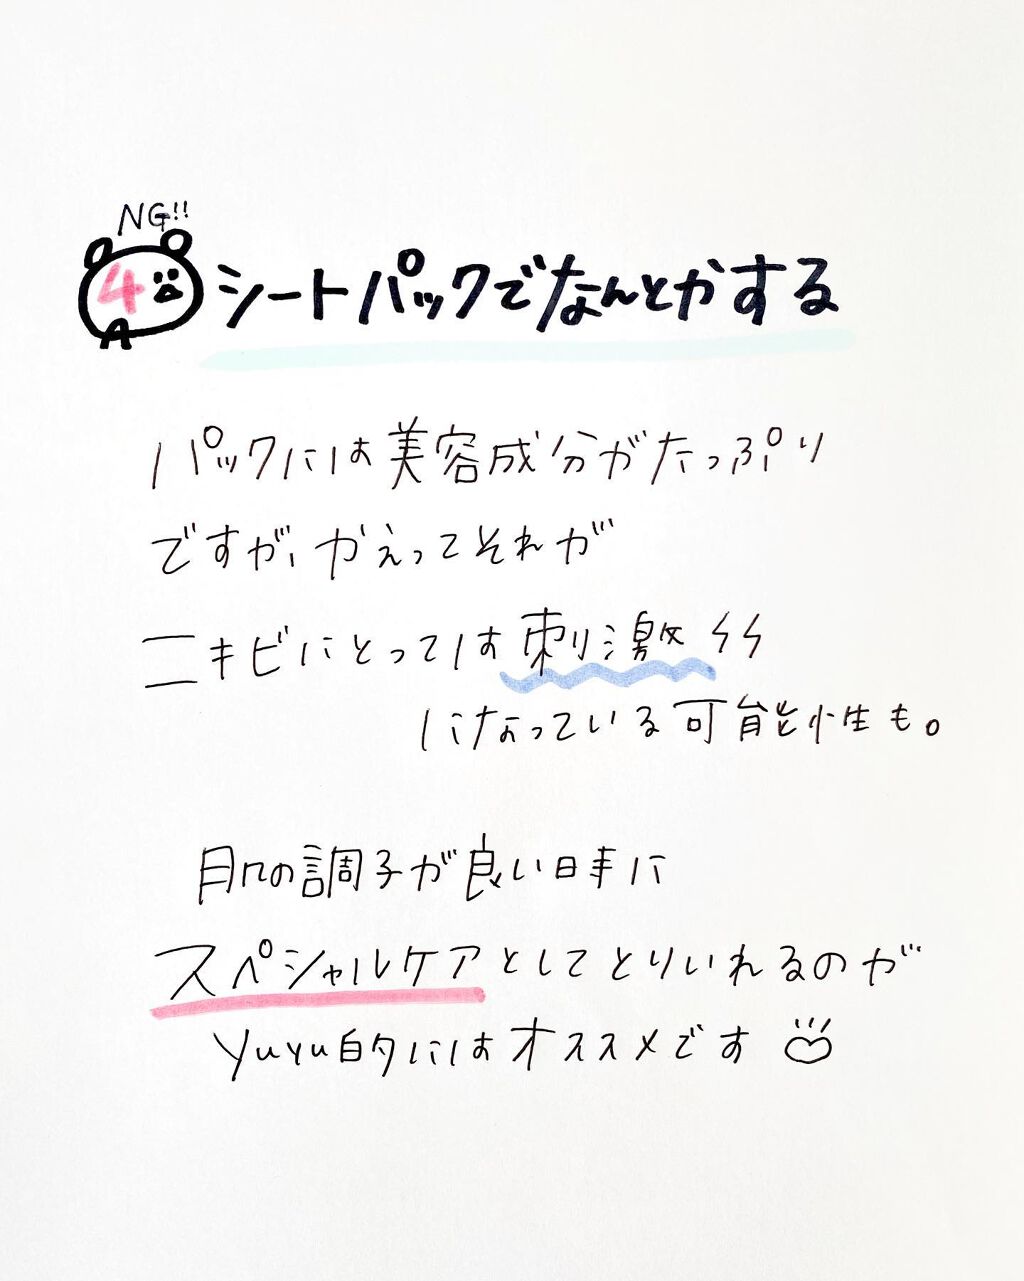 NG!!
4 シートパックでなんとかする
パックには美容成分がたっぷり
ですが、かえってそれが
ニキビにとっては刺激
になっている可能性も。
肌の調子が良い日に
スペシャルケアとしてとりいれるのが
yuyu的にはオススメです